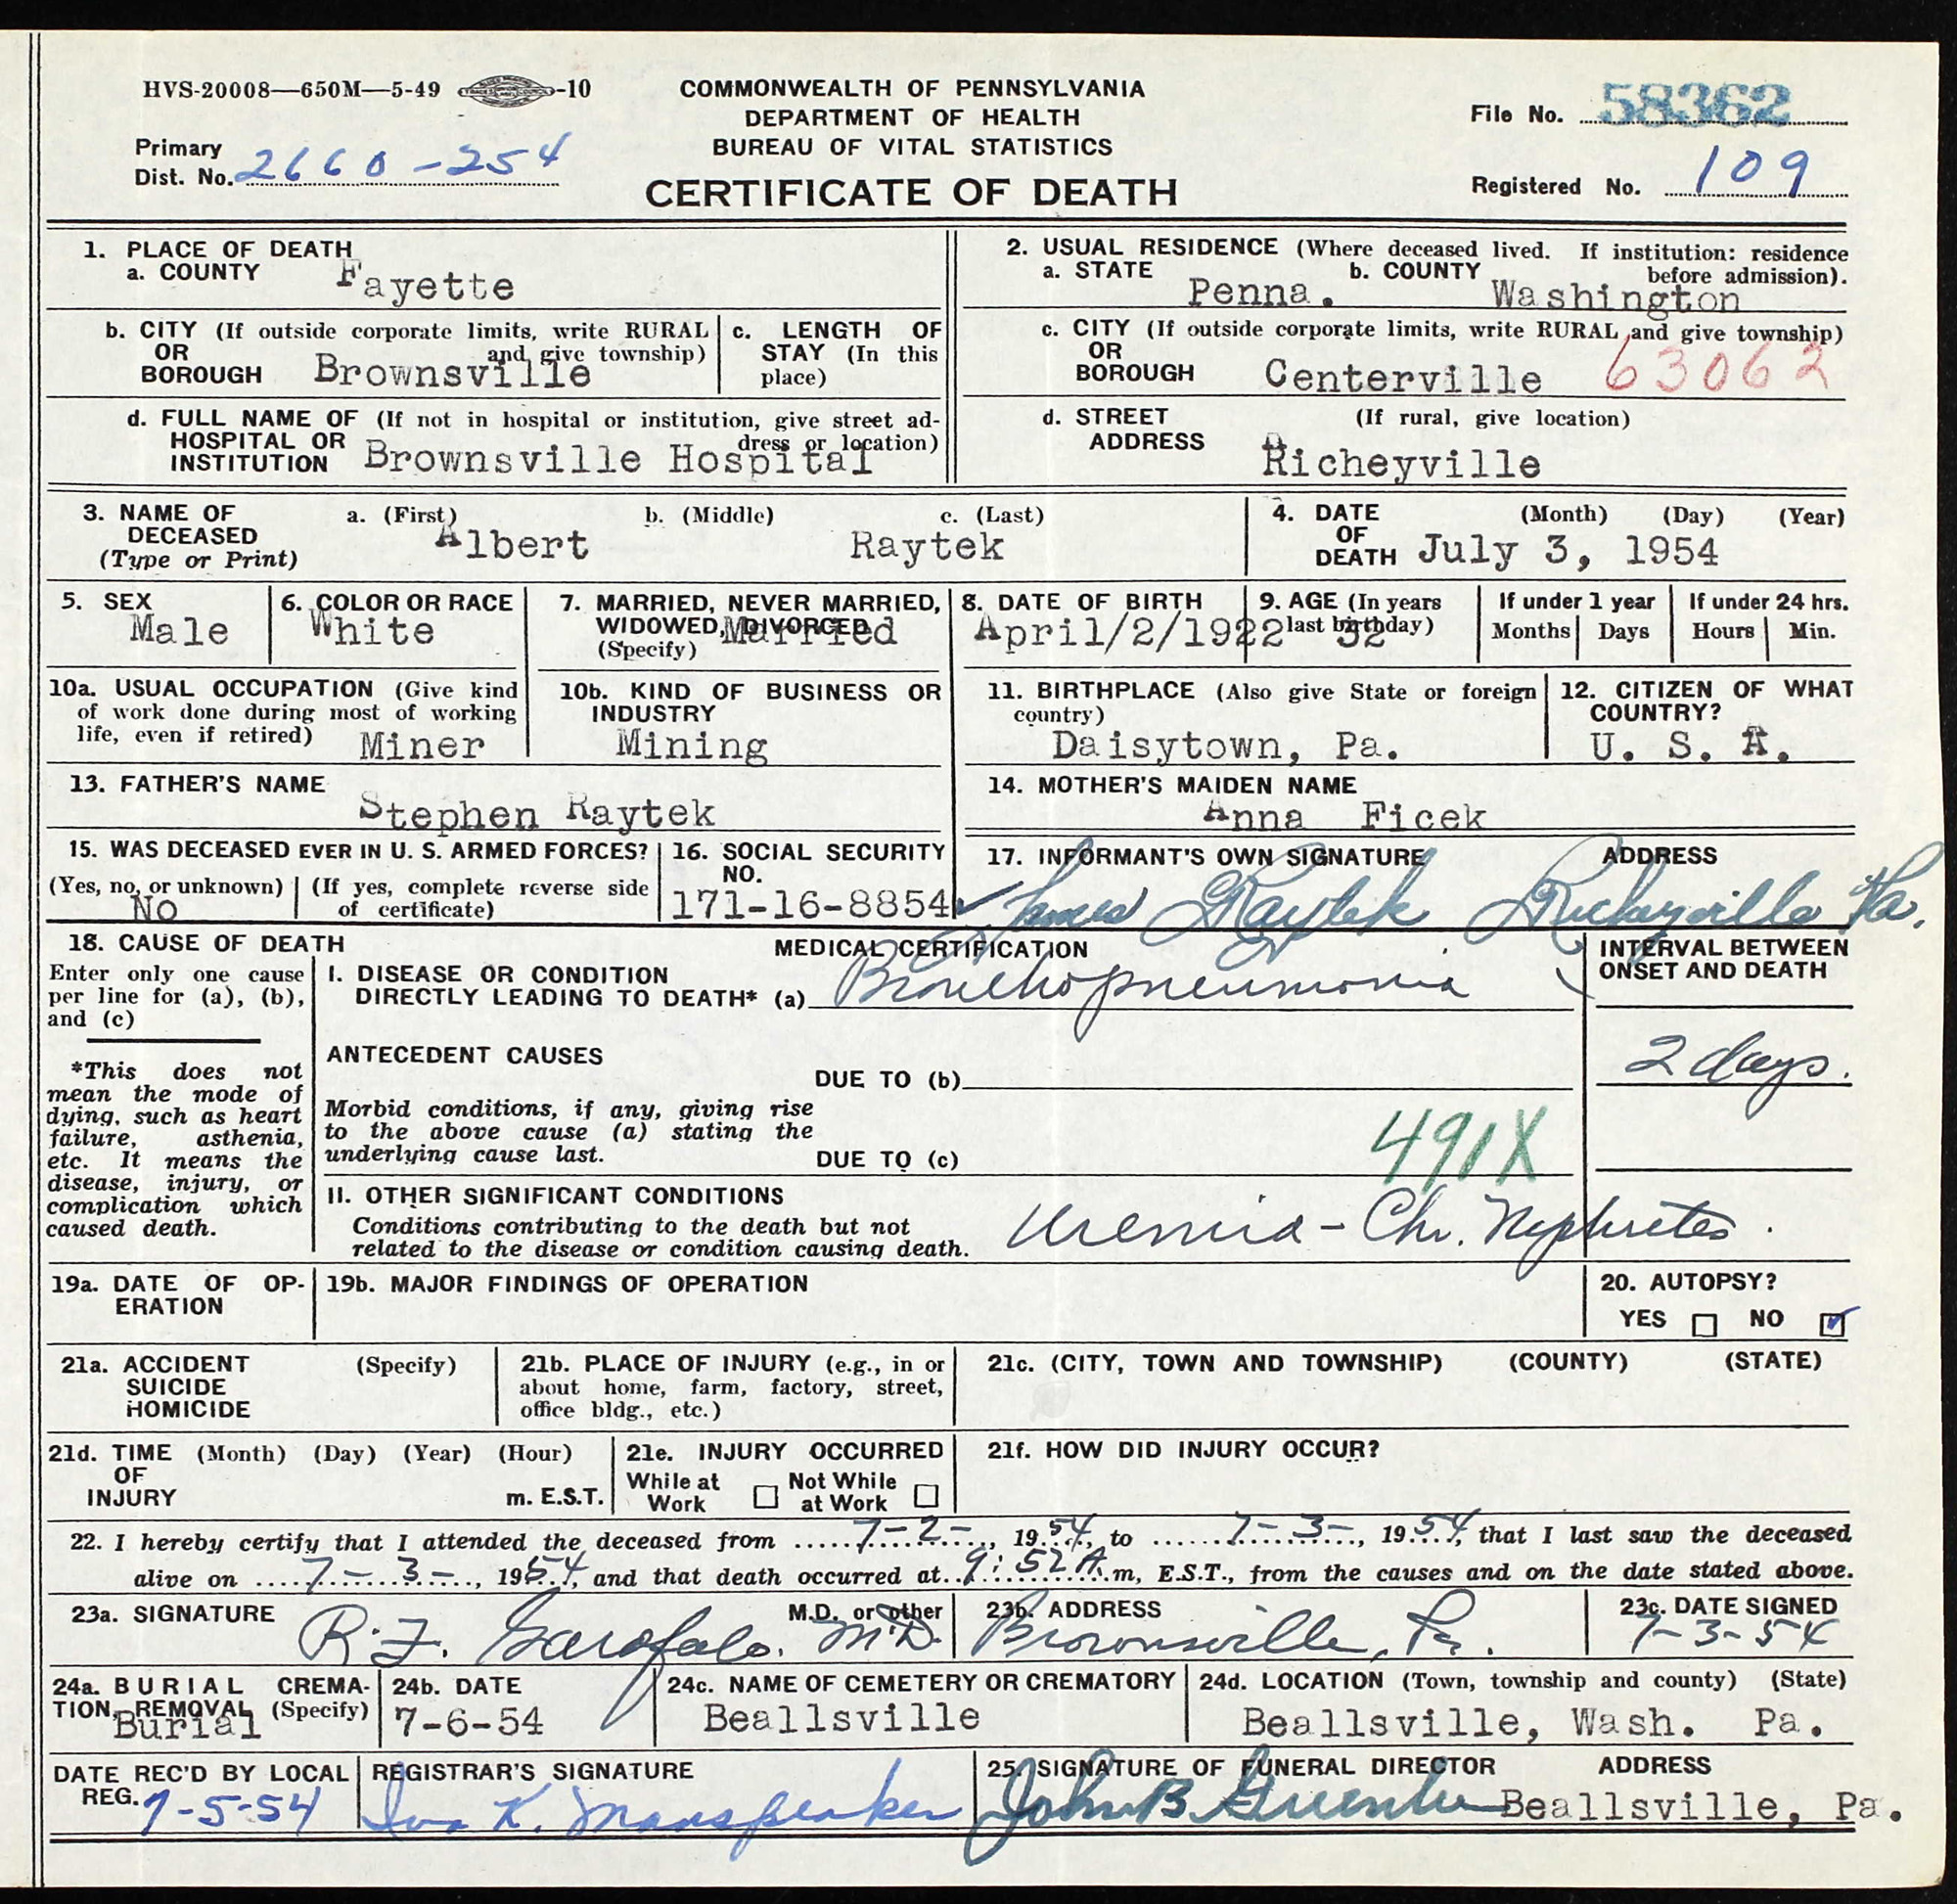 HVS-20008—650M—5-49 -10
COMMONWEALTH OF PENNSYLVANIA
DEPARTMENT OF HEALTH
BUREAU OF VITAL STATISTICS
CERTIFICATE OF DEATH
Primary
Dist. No. 2660-254
File No. 58362
Registered No. 109
1. PLACE OF DEATH
a. COUNTY Fayette
b. CITY (If outside corporate limits, write RURAL
OR and give township)
BOROUGH Brownsville
c. LENGTH OF
STAY (In this
place)
d. FULL NAME OF (If not in hospital or institution, give street ad-
HOSPITAL OR dress or location)
INSTITUTION Brownsville Hospital
2. USUAL RESIDENCE (Where deceased lived. If institution: residence
a. STATE b. COUNTY before admission).
Penna. Washington
c. CITY (If outside corporate limits, write RURAL and give township)
OR
BOROUGH Centerville 63062
d. STREET (If rural, give location)
ADDRESS Richeyville
3. NAME OF a. (First) b. (Middle) c. (Last)
DECEASED Albert Raytek
(Type or Print)
4. DATE (Month) (Day) (Year)
OF
DEATH July 3, 1954
5. SEX
Male
6. COLOR OR RACE
White
7. MARRIED, NEVER MARRIED,
WIDOWED, DIVORCED Married
(Specify)
8. DATE OF BIRTH
April/2/1922
9. AGE (In years
last birthday) 32
If under 1 year
Months Days
If under 24 hrs.
Hours Min.
10a. USUAL OCCUPATION (Give kind
of work done during most of working
life, even if retired) Miner
10b. KIND OF BUSINESS OR
INDUSTRY
Mining
11. BIRTHPLACE (Also give State or foreign
country)
Daisytown, Pa.
12. CITIZEN OF WHAT
COUNTRY?
U. S. A.
13. FATHER'S NAME
Stephen Raytek
14. MOTHER'S MAIDEN NAME
Anna Ficek
15. WAS DECEASED EVER IN U. S. ARMED FORCES?
(Yes, no, or unknown) (If yes, complete reverse side
No of certificate)
16. SOCIAL SECURITY
NO.
171-16-8854
17. INFORMANT'S OWN SIGNATURE ADDRESS
James Raytek Richeyville Pa.
18. CAUSE OF DEATH
Enter only one cause
per line for (a), (b),
and (c)
*This does not
mean the mode of
dying, such as heart
failure, asthenia,
etc. It means the
disease, injury, or
complication which
caused death.
MEDICAL CERTIFICATION
I. DISEASE OR CONDITION
DIRECTLY LEADING TO DEATH* (a) Bronchopneumonia
ANTECEDENT CAUSES
DUE TO (b)
Morbid conditions, if any, giving rise
to the above cause (a) stating the
underlying cause last.
DUE TO (c)
491X
INTERVAL BETWEEN
ONSET AND DEATH
2 days.
II. OTHER SIGNIFICANT CONDITIONS
Conditions contributing to the death but not
related to the disease or condition causing death.
Uremia - Chr. Nephrites.
19a. DATE OF OP-
ERATION
19b. MAJOR FINDINGS OF OPERATION
20. AUTOPSY?
YES NO
21a. ACCIDENT (Specify)
SUICIDE
HOMICIDE
21b. PLACE OF INJURY (e.g., in or
about home, farm, factory, street,
office bldg., etc.)
21c. (CITY, TOWN AND TOWNSHIP) (COUNTY) (STATE)
21d. TIME (Month) (Day) (Year) (Hour)
OF
INJURY m. E.S.T.
21e. INJURY OCCURRED
While at Not While
Work at Work
21f. HOW DID INJURY OCCUR?
22. I hereby certify that I attended the deceased from 7-2-, 1954, to 7-3-, 1954, that I last saw the deceased
alive on 7-3-, 1954, and that death occurred at 9:52 A. m, E.S.T., from the causes and on the date stated above.
23a. SIGNATURE M.D. or other
R.F. Garofalo. M.D.
23b. ADDRESS
Brownsville, Pa.
23c. DATE SIGNED
7-3-54
24a. BURIAL CREMA-
TION, REMOVAL (Specify)
Burial
24b. DATE
7-6-54
24c. NAME OF CEMETERY OR CREMATORY
Beallsville
24d. LOCATION (Town, township and county) (State)
Beallsville, Wash. Pa.
DATE REC'D BY LOCAL
REG. 7-5-54
REGISTRAR'S SIGNATURE
Iva K. Manspeaker
25. SIGNATURE OF FUNERAL DIRECTOR ADDRESS
John B Greenlee Beallsville, Pa.